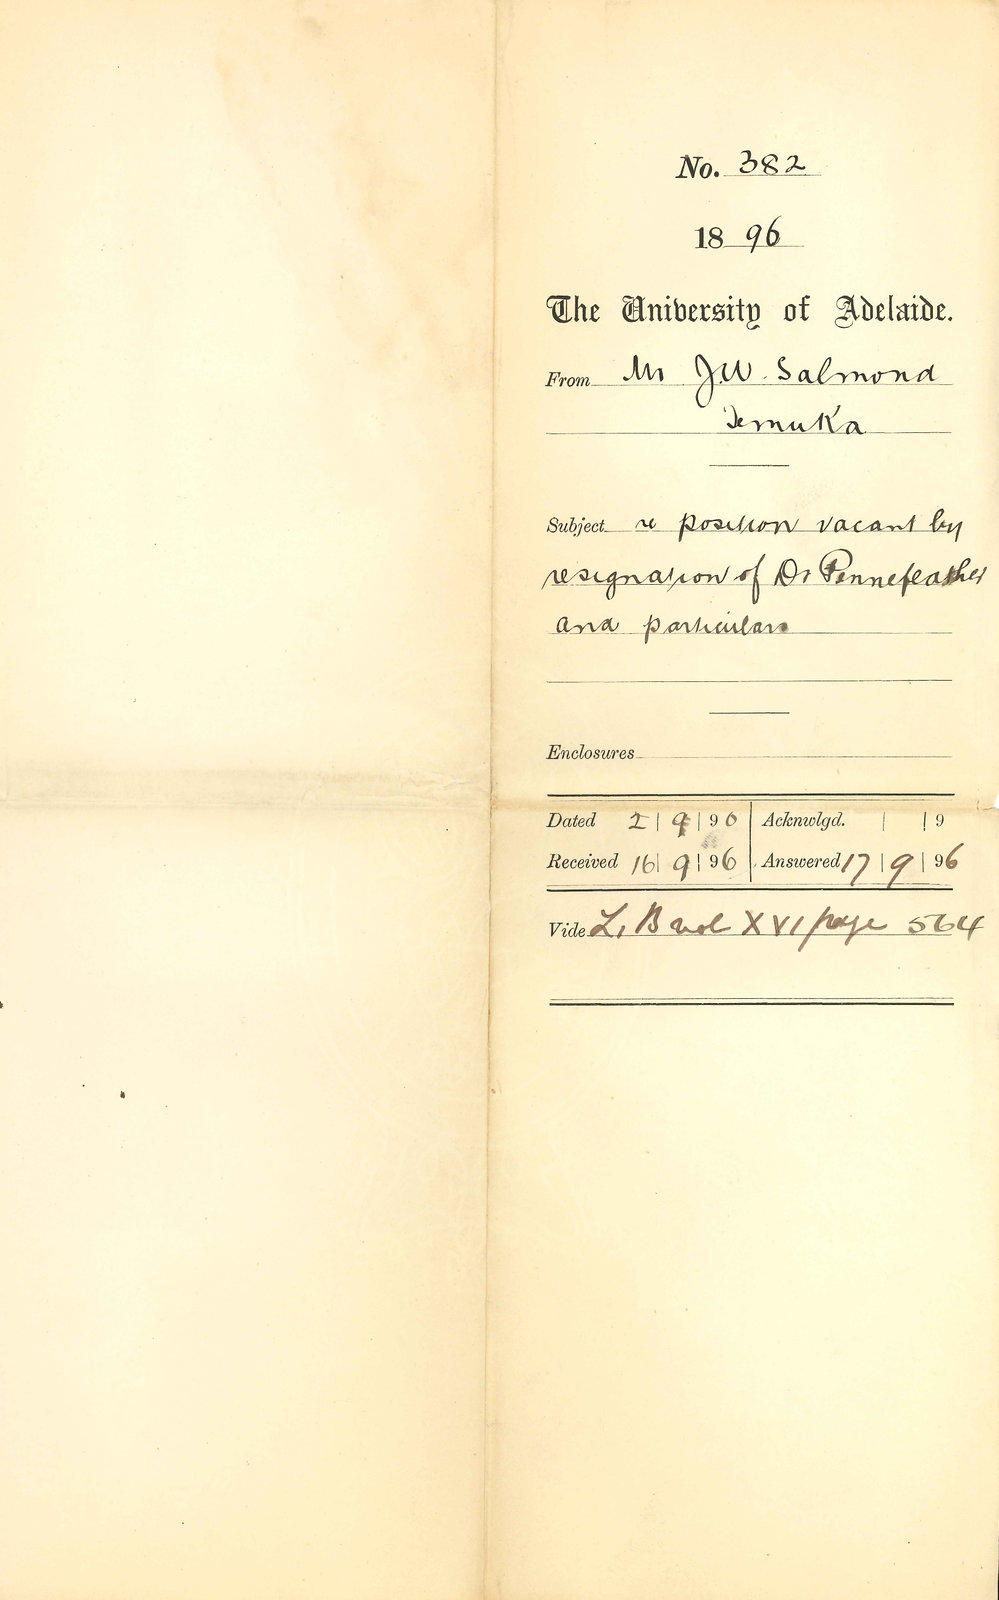 No. 382
18 96
The University of Adelaide.
From Mr J.W. Salmond
Temuka
Subject re position vacant by
resignation of Dr Pennefeather
and particulars
Enclosures
Dated 2 | 9 | 96 Acknwlgd. | | 9
Received 16 | 9 | 96 Answered 17 | 9 | 96
Vide L. B vol XVI page 564